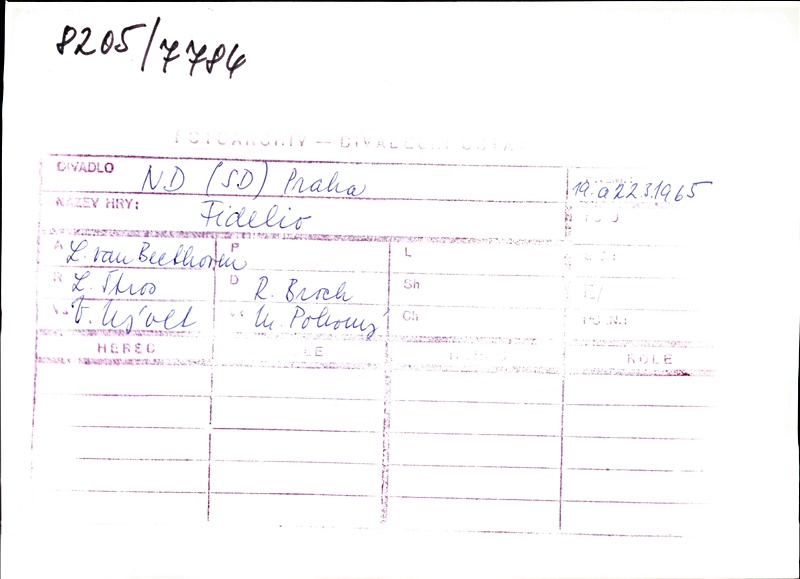 8205/7784
FOTOARCHIV — DIVADELNÍ ÚSTAV
DIVADLO ND (SD) Praha 19. a 22.3.1965
NÁZEV HRY: Fidelio
A L. van Beethoven P L
R L. Štros D R. Broch Sh
V. M. Pokorný Ch
HEREC ROLE